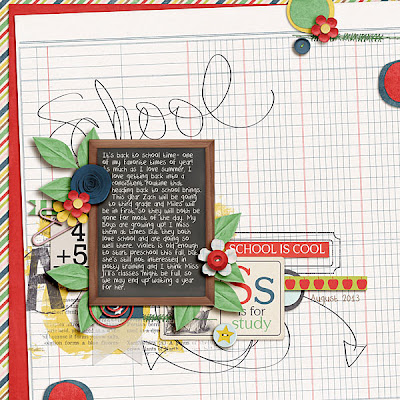 School
It's back to school time- one
of my favorite times of year!
As much as I love summer, I
love getting back into a
consistent routine that
heading back to school brings.
This year Zach will be going
to third grade and Miles will
be in first, so they will both be
gone for most of the day. My
Boys are growing up! I miss
them at times but they both
love school and are going so
well there. is old enough
to start preschool this fall, but
she's still not interested in
potty training and I think Miss
JJ's classes might be full, so
we may end up waiting a year
for her.
4
+5
A
SCHOOL IS COOL
Ss
is for
study
August 2013